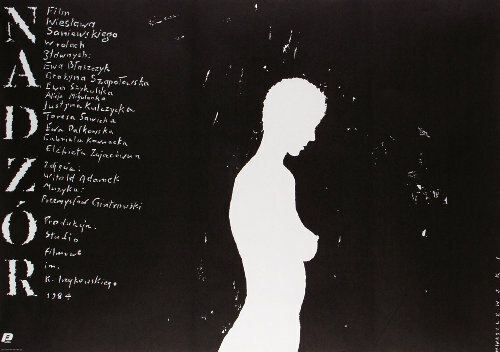 NADZÓR
Film
Wiesława
Saniewskiego
w rolach
głównych:
Ewa Błaszczyk
Grażyna Szapołowska
Ewa Szykulska
Alicja Mikulanko
Justyna Kulczycka
Teresa Sawicka
Ewa Dałkowska
Gabriela Kownacka
Elżbieta Zającówna
Zdjęcia:
Witold Adamek
Muzyka:
Przemysław Gintrowski
Produkcja:
Studio
Filmowe
im.
K. Irzykowskiego
1984